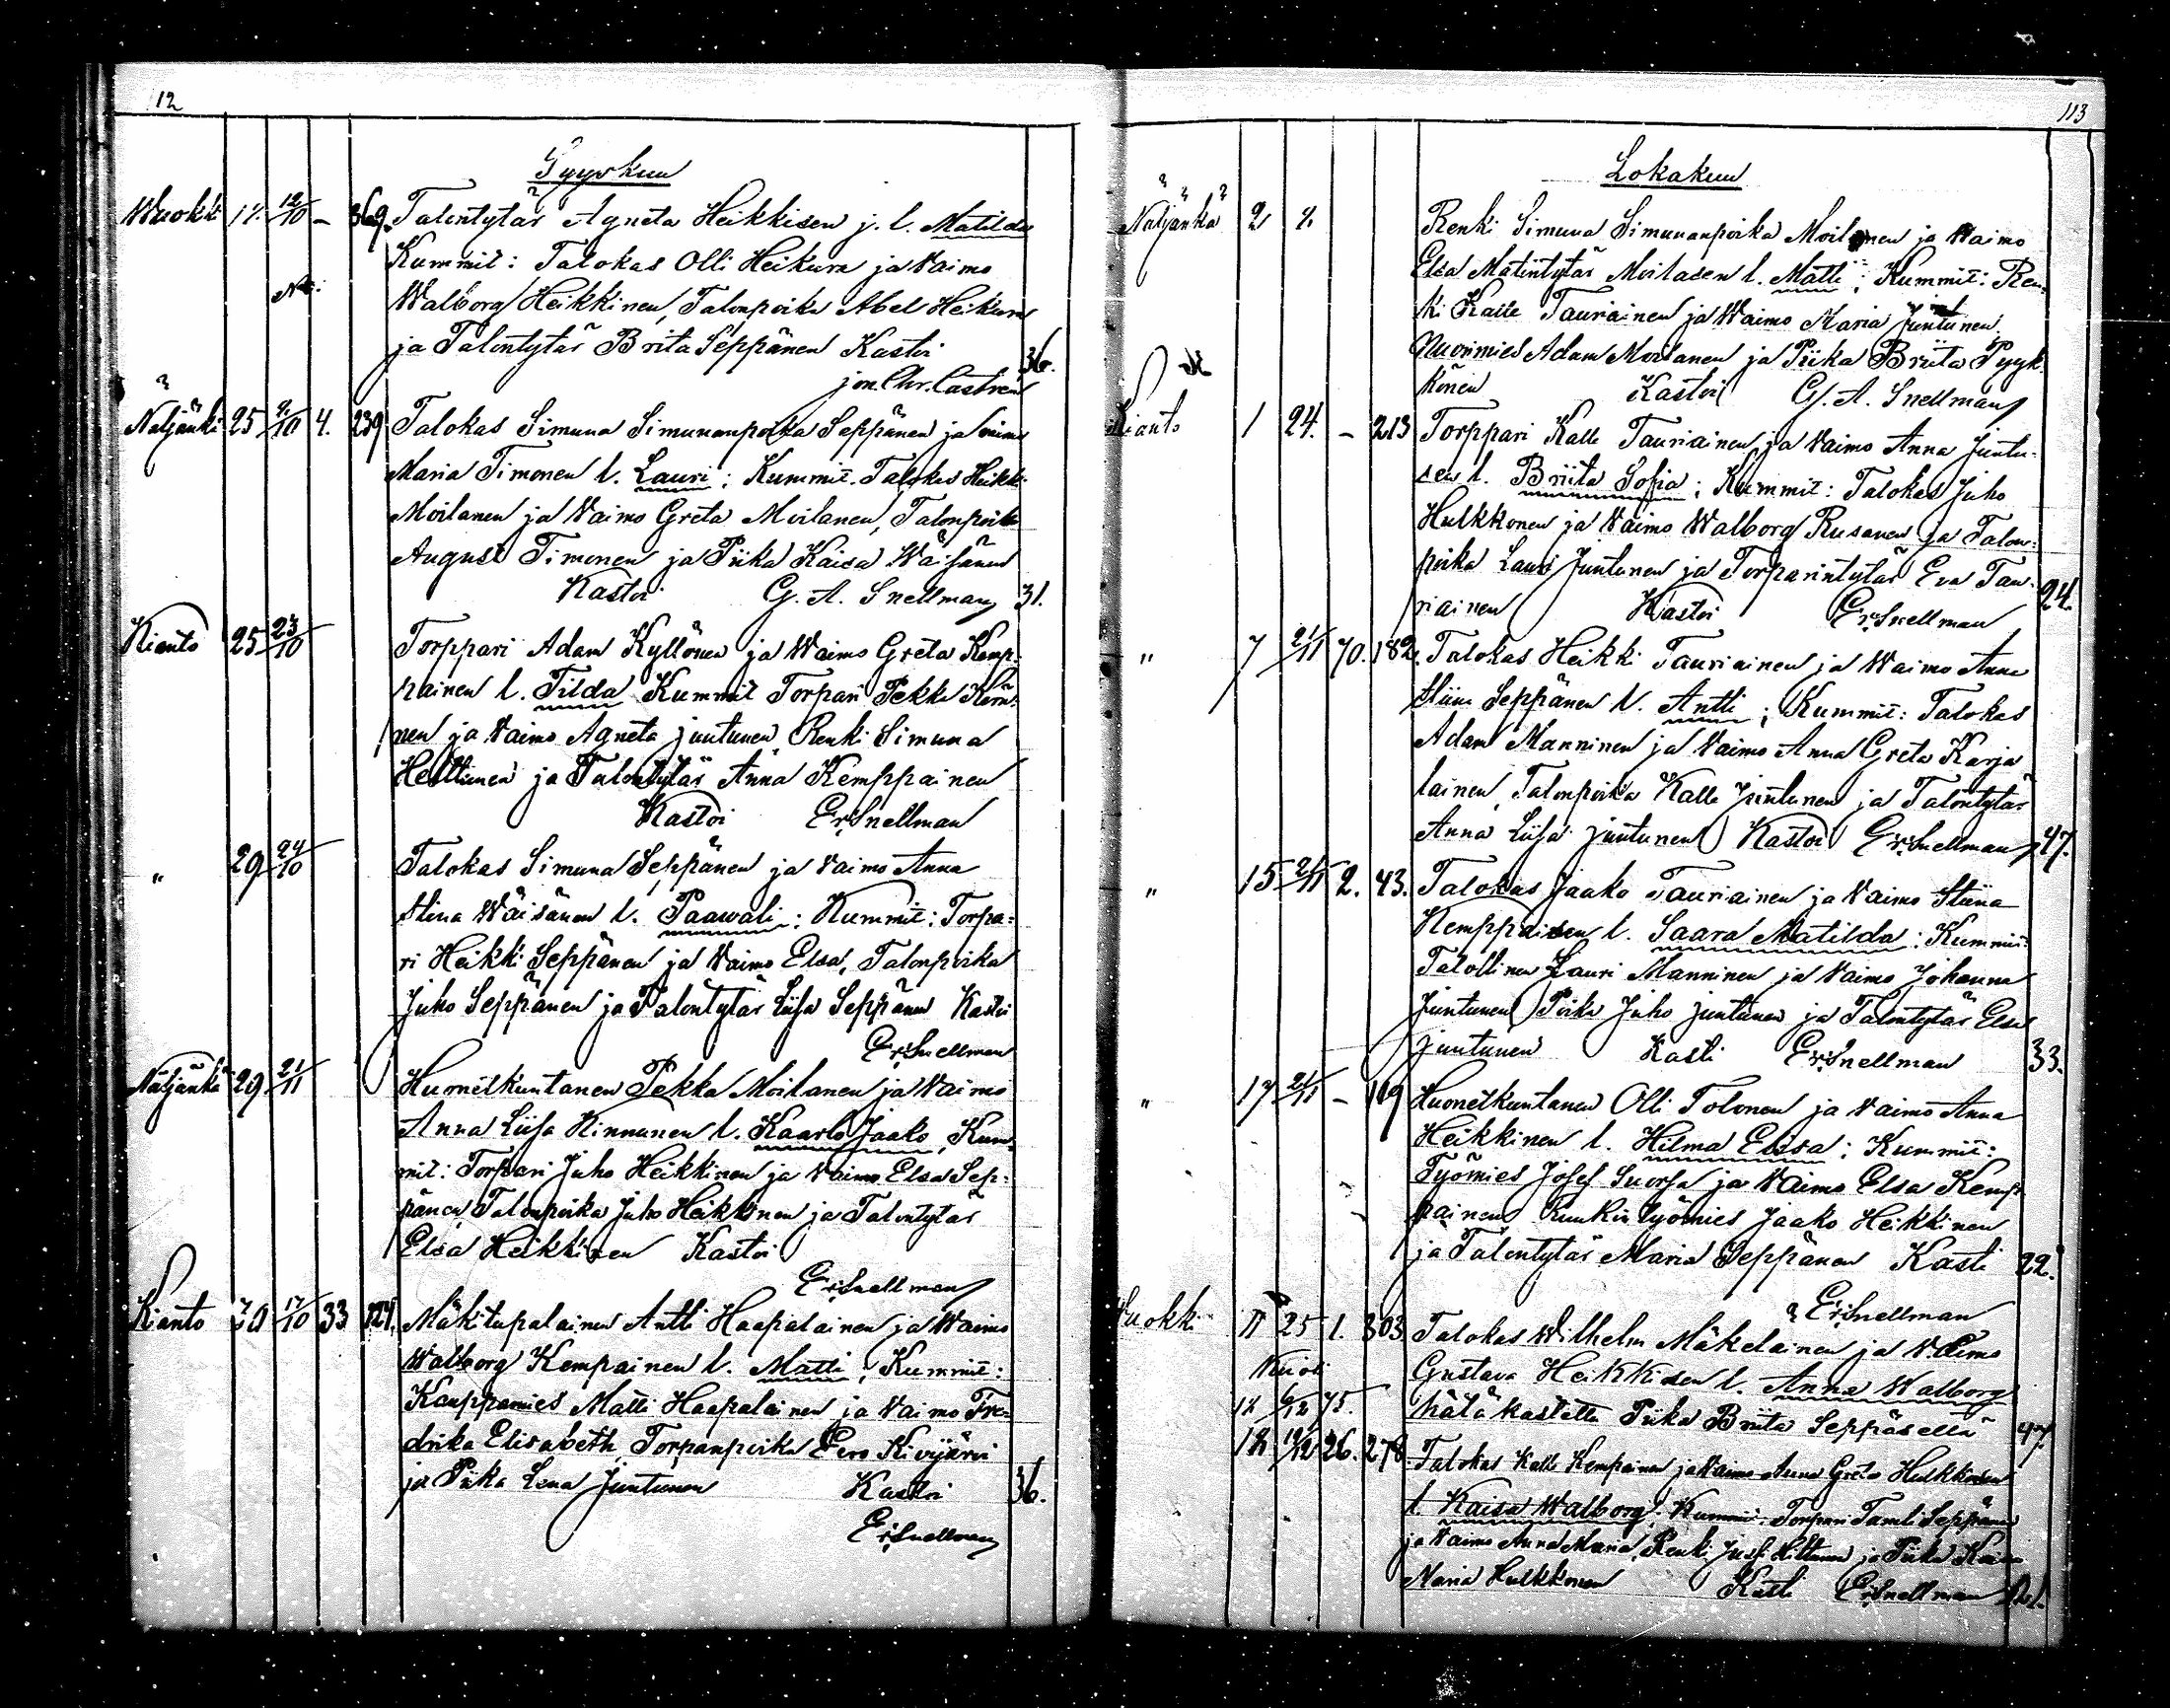 112
Syyskuu
Wuokki 17. 12/10 - 369. Talontytär Agneta Heikkisen j. l. Matilda
Kummit: Talokas Olli Heikura ja Vaimo
Walborg Heikkinen, Talonpoika Abel Heikura
ja Talontytär Brita Seppänen Kastoi 36.
Joh. Chr. Castrén
Näljänkä 25 4/10 4. 239 Talokas Simuna Simunanpoika Seppänen ja vaimo
Maria Timonen l. Lauri; Kummit. Talokas Heikki
Moilanen ja Vaimo Greta Moilanen, Talonpoika
August Timonen ja Piika Kaisa Wäisänen
Kastoi G. A. Snellman 31.
Kianto 25 23/10 Torppari Adam Kyllönen ja Waimo Greta Kemp-
painen l. Tilda Kummit Torpari Pekka
nen ja Vaimo Agneta Juntunen, Renki Simuna
Heittinen ja Talontytär Anna Kemppainen
Kastoi Er. Snellman
" 29 24/10 Talokas Simuna Seppänen ja Vaimo Anna
Stina Wäisänen l. Paawali: Kummit: Torpa=
ri Heikki Seppänen ja Waimo Elsa, Talonpoika
Juho Seppänen ja Talontytär Liisa Seppänen Kastoi
Er. Snellman
Näljänkä 29 21/11 Huonetkuntanen Pekka Moilanen ja Vaimo
Anna Liisa Kinnunen l. Kaarlo Jaako, Kum-
mit: Torpari Juho Heikkinen ja Vaimo Elsa Sep=
pänen, Talonpoika Juho Heikkinen ja Talontytär
Elsa Heikkinen Kastoi
Er. Snellman
Kianto 30 17/10 33 124. Mäkitupalainen Antti Haapalainen ja Waimo
Walborg Kempainen l. Matti; Kummit:
Kauppamies Matti Haapalainen ja Vaimo Fre=
drika Elisabeth, Torparipoika Eero Kivijärvi
ja Piika Lena Juntunen Kastoi 36.
Er. Snellman
113
Lokakuu
Näljänkä 2 4. Renki Simuna Simunanpoika Moilanen ja Waimo
Elsa Matintytär Moilasen l. Matti; Kummit: Ren-
ki Kalle Tauriainen ja Waimo Maria Juntunen
Nuorimies Adam Moilanen ja Piika Briita Pyyk-
könen Kastoi G. A. Snellman
Kianto 1 24. - 213 Torppari Kalle Tauriainen ja Vaimo Anna Juntu-
sen l. Briita Sofia; Kummit: Talokas Juho
Hulkkonen ja Vaimo Walborg Rusanen ja Talon-
poika Lauri Juntunen ja Torparintytär Eva Tau-
riainen Kastoi Er. Snellman 24.
" 7 21/11 70. 182. Talokas Heikki Tauriainen ja Waimo Anna
Stiina Seppänen l. Antti; Kummit: Talokas
Adam Manninen ja Vaimo Anna Greta Karja
lainen, Talonpoika Kalle Juntunen ja Talontytär
Anna Liisa Juntunen Kastoi Er. Snellman 47.
" 15 21/11 2. 43. Talokas Jaako Tauriainen ja Vaimo Stiina
Kemppaisen l. Saara Matilda: Kummit:
Talollinen Lauri Manninen ja Vaimo Johanna
Juntunen Poika Juho Juntunen ja Talontytär Elsa
Juntunen Kasti Er. Snellman 33.
" 17 21/11 - 119 Huonetkuntanen Olli Tolonen ja Vaimo Anna
Heikkinen l. Hilma Elssa; Kummit:
Työmies Josef Suorsa ja Vaimo Elsa Kemp
painen Ruukin työmies Jaako Heikkinen
ja Talontytär Maria Seppänen Kasti 22.
Er. Snellman
Wuokki 11 25 1. 303 Talokas Wilhelm Mäkelainen ja Vaimo
Kuoli Gustava Heikkisen l. Anna Walborg
12 6/12 75. hätäkastettu Piika Briita Seppäsellä 47.
18 19/12 26. 278. Talokas Kalle Kempainen ja Vaimo Anna Greta Hulkkonen
l. Kaisa Walborg. Kummit. Torpari Taneli Seppänen
ja Vaimo Anna Maria, Renki Josef Kiltunen ja Piika Kaisa
Maria Hulkkonen Kasti Er. Snellman 21.